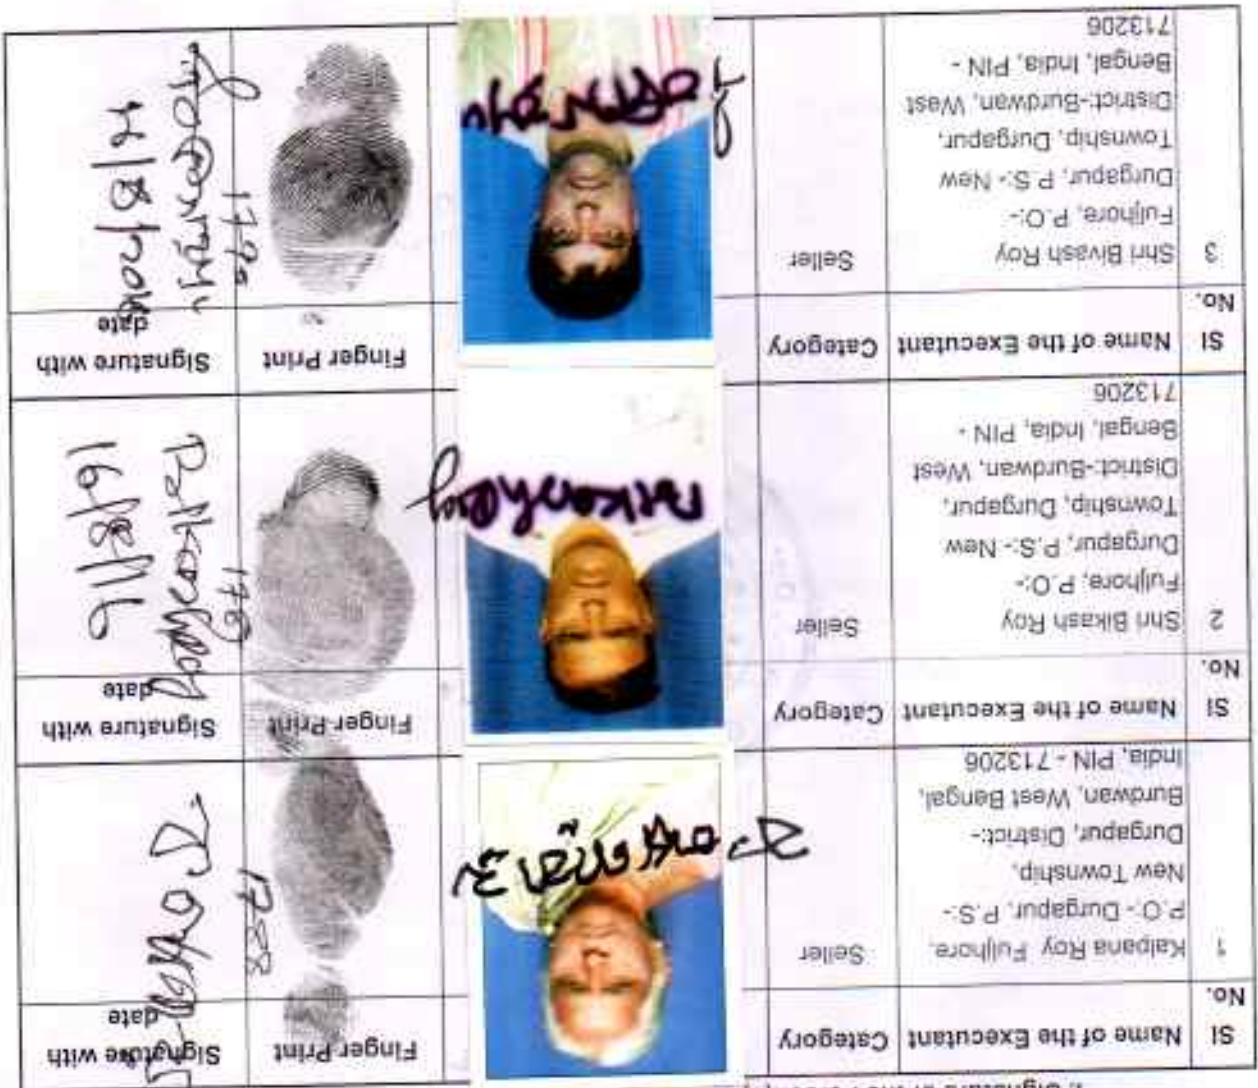 Sl No.
Name of the Executant
Category
Finger Print
Signature with date
1
Kalpana Roy Fuljhore,
P.O:- Durgapur, P.S:-
New Township,
Durgapur, District:-
Burdwan, West Bengal,
India, PIN - 713206
Seller
1788
Sl No.
Name of the Executant
Category
Finger Print
Signature with date
2
Shri Bikash Roy
Fuljhore, P.O:-
Durgapur, P.S:- New
Township, Durgapur,
District:-Burdwan, West
Bengal, India, PIN -
713206
Seller
Bikash Roy
178
16/8/16
Sl No.
Name of the Executant
Category
Finger Print
Signature with date
3
Shri Bivash Roy
Fuljhore, P.O:-
Durgapur, P.S:- New
Township, Durgapur,
District:-Burdwan, West
Bengal, India, PIN -
713206
Seller
1790